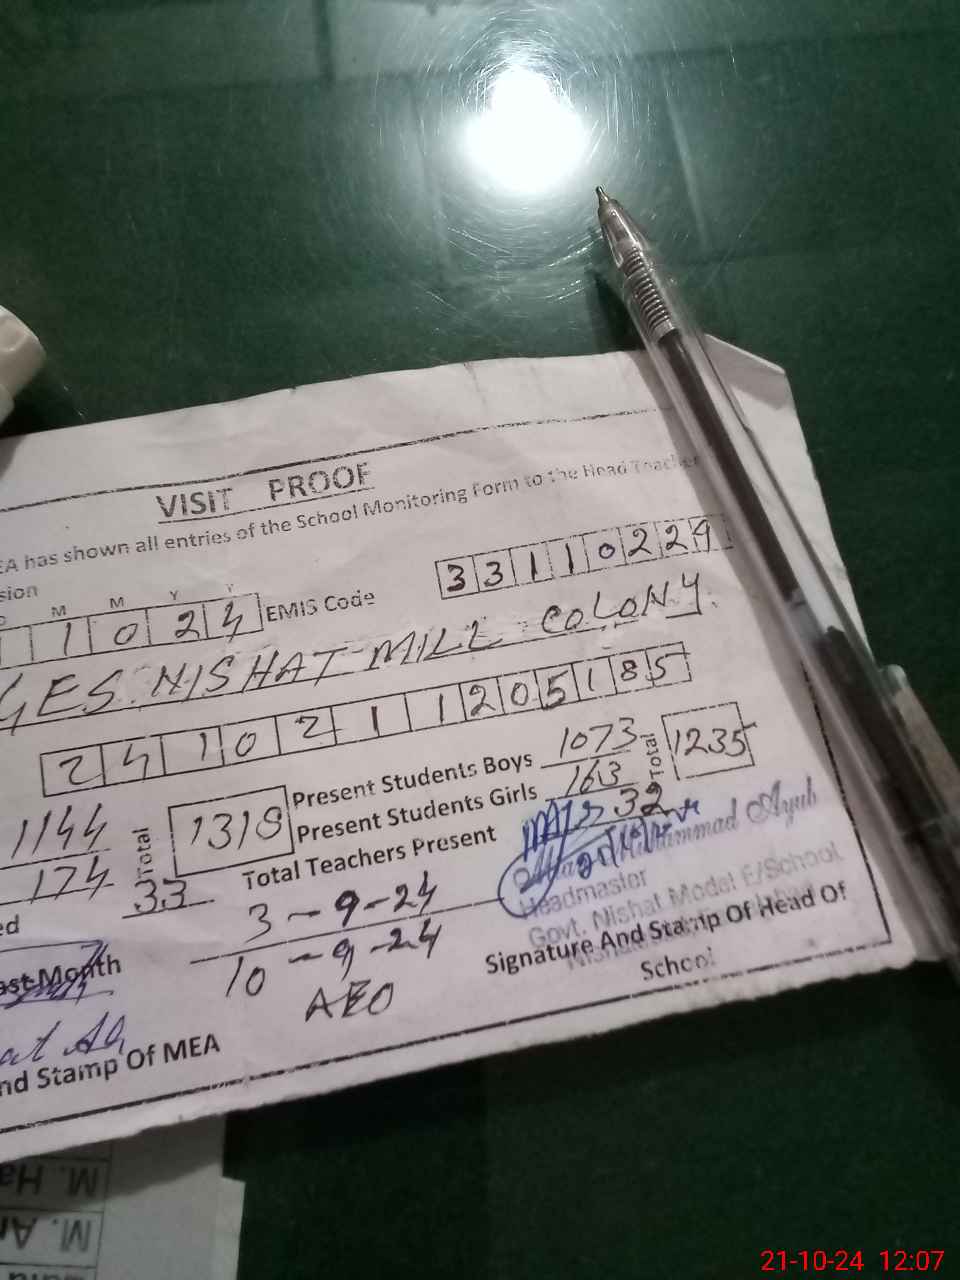 VISIT PROOF
EA has shown all entries of the School Monitoring Form to the Head Teacher
sion
M M Y Y
1 0 2 4 EMIS Code 3 3 1 1 0 2 2 9
GES. NISHAT MILL COLONY.
2 4 1 0 2 1 1 2 0 5 1 8 5
1144 Total 1318 Present Students Boys 1073 Total 1235
174 Present Students Girls 163
33 Total Teachers Present 32
Muhammad Ayub
Headmaster
Govt. Nishat Model E/School
ed
3-9-24
10-9-24
AEO
ast Month
Signature And Stamp Of Head Of
School
nd Stamp Of MEA
M. Ha
M. Ar
21-10-24 12:07